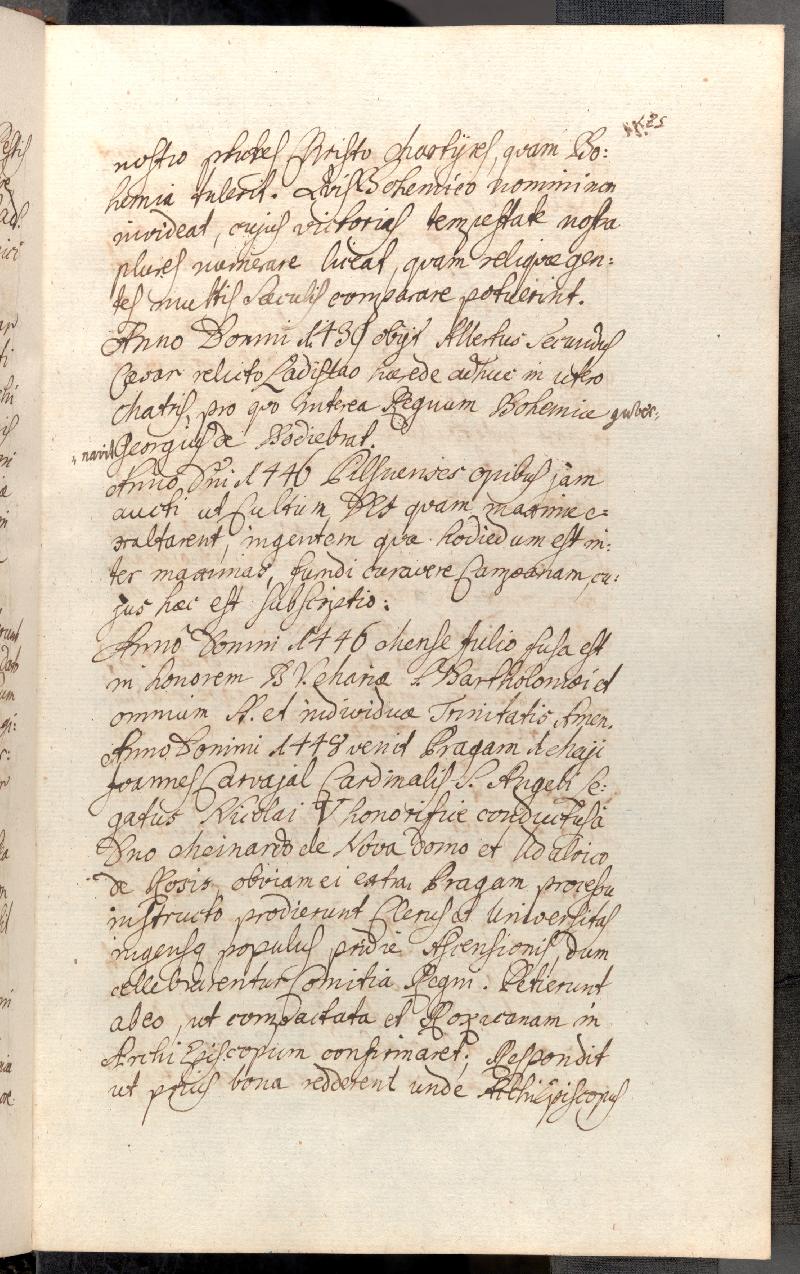 nostro plures Christo Martyres, quam Bo:
hemia tulerit. Quis Bohemico nomini non
invideat, cujus victorias tempestate nostra
plures numerare liceat, quam reliquae gen:
tes multis saeculis comparare potuerint.
Anno Domni 1439 obijt Albertus Secundus
Caesar relicto Ladislao haerede adhuc in utero
Matris, pro quo interea Regnum Bohemiae guber:
navit Georgius de Podiebrat.
Anno Dni 1446 Pilsnenses opibus jam
aucti ut Cultum DEO quam maxime e:
xaltarent, ingentem quae hodiedum est in:
ter maximas, fundi curavere Campanam, cu:
jus haec est subscriptio:
Anno Domini 1446 Mense Julio fusa est
in honorem B V. Mariae S. Bartholomaei et
omnium SS. et individuae Trinitatis Amen.
Anno Domini 1448 venit Pragam 1 Maji
Joannes Carvajal Cardinalis S. Angeli Le:
gatus Nicolai V honorifice conductus a
Dno Meinardo de Nova Domo et Udalrico
de Rosis, obviam ei extra Pragam processu
instructo prodierunt Clerus et Universitas
ingensq populus pridie Ascensionis, dum
cellebrarentur Comitia Regni. Petierunt
ab eo, ut compactata et Roxacanam in
Archi Episcopum confirmaret; Respondit
ut prius bona redderent unde ArchiEpiscopus